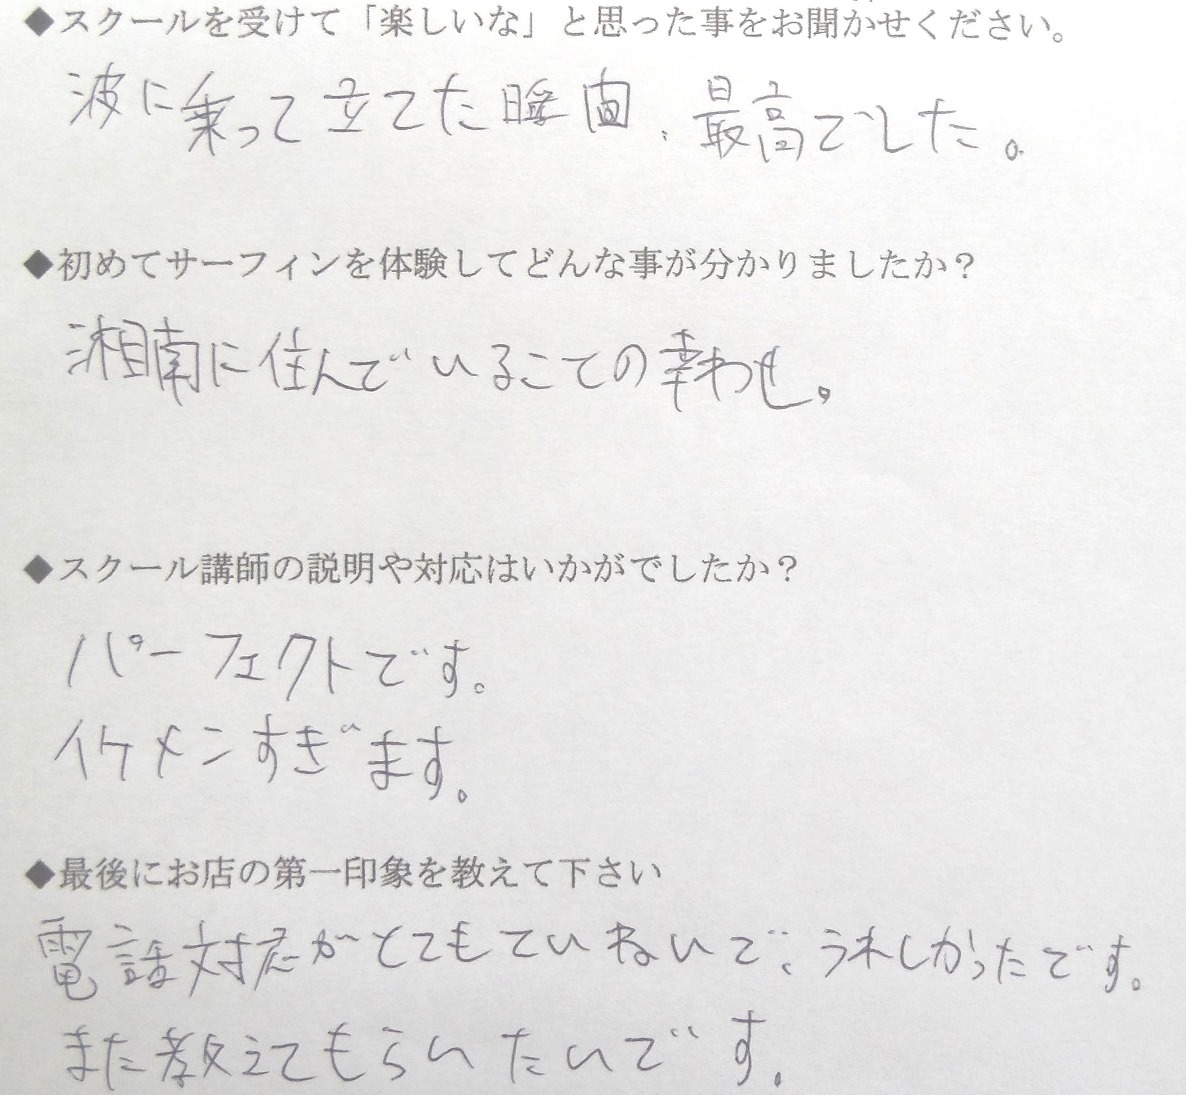 ◆スクールを受けて「楽しいな」と思った事をお聞かせください。
波に乗って立てた瞬間、最高でした。
◆初めてサーフィンを体験してどんな事が分かりましたか？
湘南に住んでいることの幸わせ。
◆スクール講師の説明や対応はいかがでしたか？
パーフェクトです。
イケメンすぎます。
◆最後にお店の第一印象を教えて下さい
電話対応がとてもていねいで、うれしかったです。
また教えてもらいたいです。